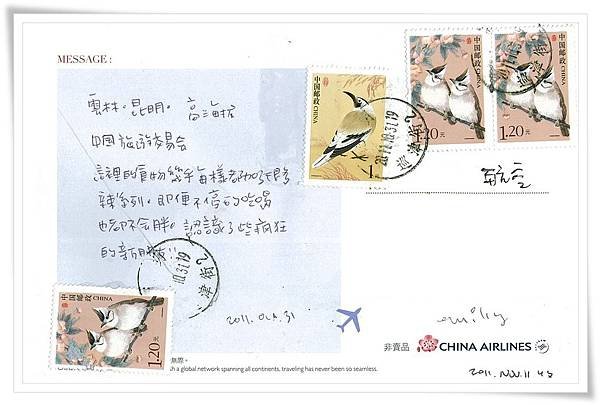 MESSAGE:
雲林。昆明。高海拔
中国旅游交易会
這裡的食物幾乎每樣都加了
辣系列。即便不停的吃喝
也都不会胖。認識了些疯狂
的新朋友!!
2011.Oct.31
中国邮政 CHINA
1.20元
中国邮政
CHINA
1
中国邮政
CHINA
1.20元
中国邮政
CHINA
1.20元
航空
emily
非賣品 CHINA AIRLINES
2011.Nov.11
a global network spanning all continents, traveling has never been so seamless.